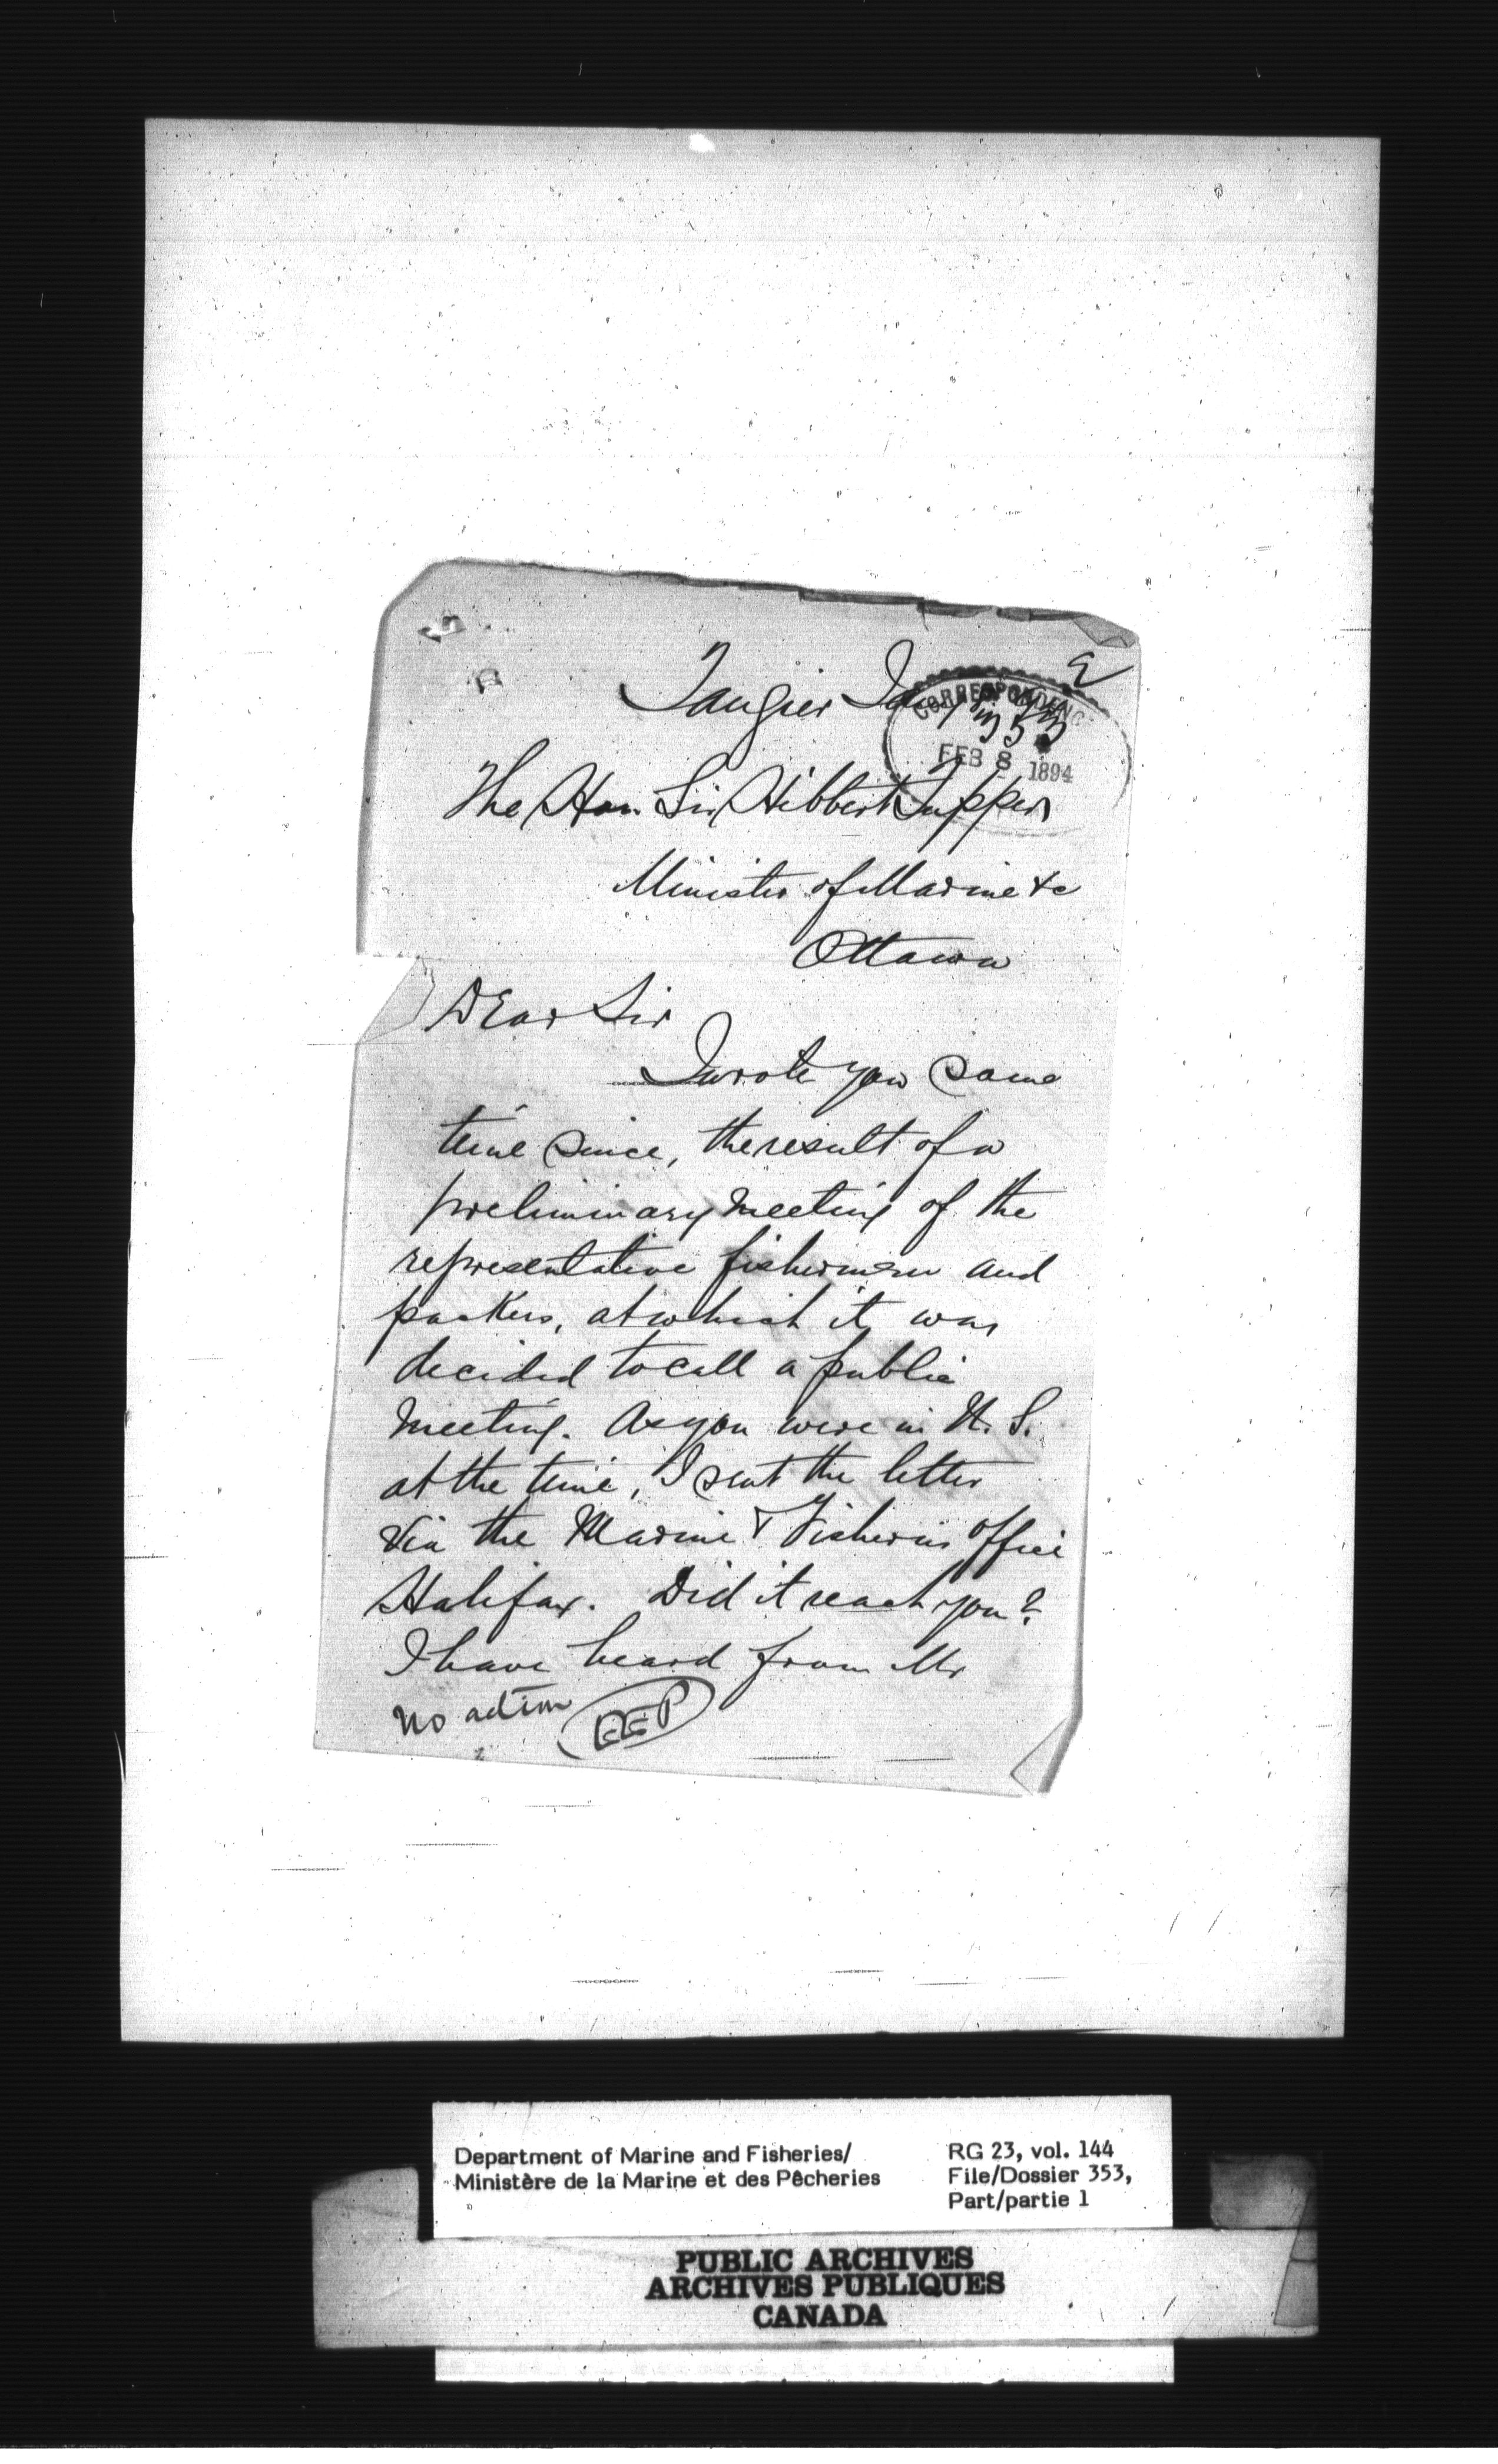 Tangier Jany
CORRESPONDENCE
FEB 8 1894
The Hon. Sir Hibbert Tupper
Minister of Marine &c
Ottawa
Dear Sir
I wrote you some
time since, the result of a
preliminary meeting of the
representative fishermen and
packers, at which it was
decided to call a public
meeting. As you were in N. S.
at the time, I sent the letter
via the Marine & Fisheries office
Halifax. Did it reach you?
I have heard from Mr
No action EEP
Department of Marine and Fisheries/
Ministère de la Marine et des Pêcheries
RG 23, vol. 144
File/Dossier 353,
Part/partie 1
PUBLIC ARCHIVES
ARCHIVES PUBLIQUES
CANADA